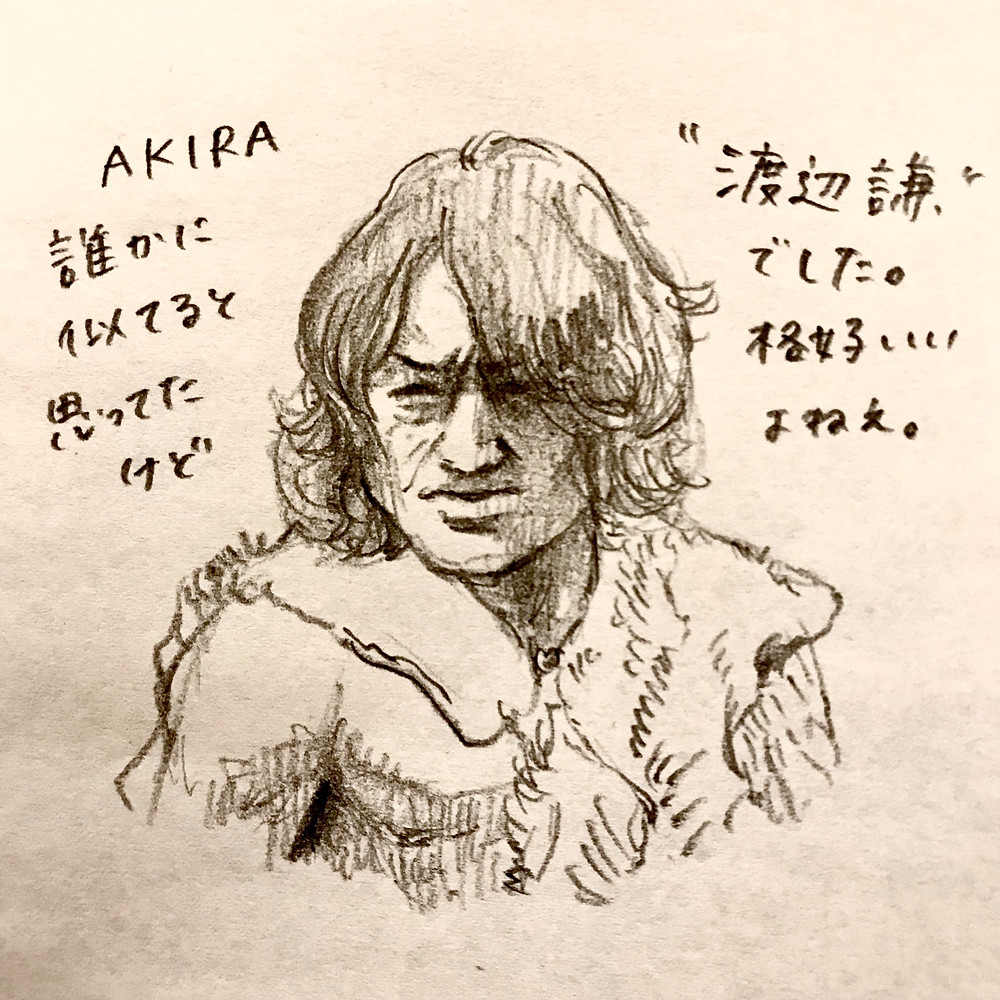 AKIRA
誰かに
似てると
思ってた
けど
"渡辺謙"
でした。
格好いい
よねぇ。